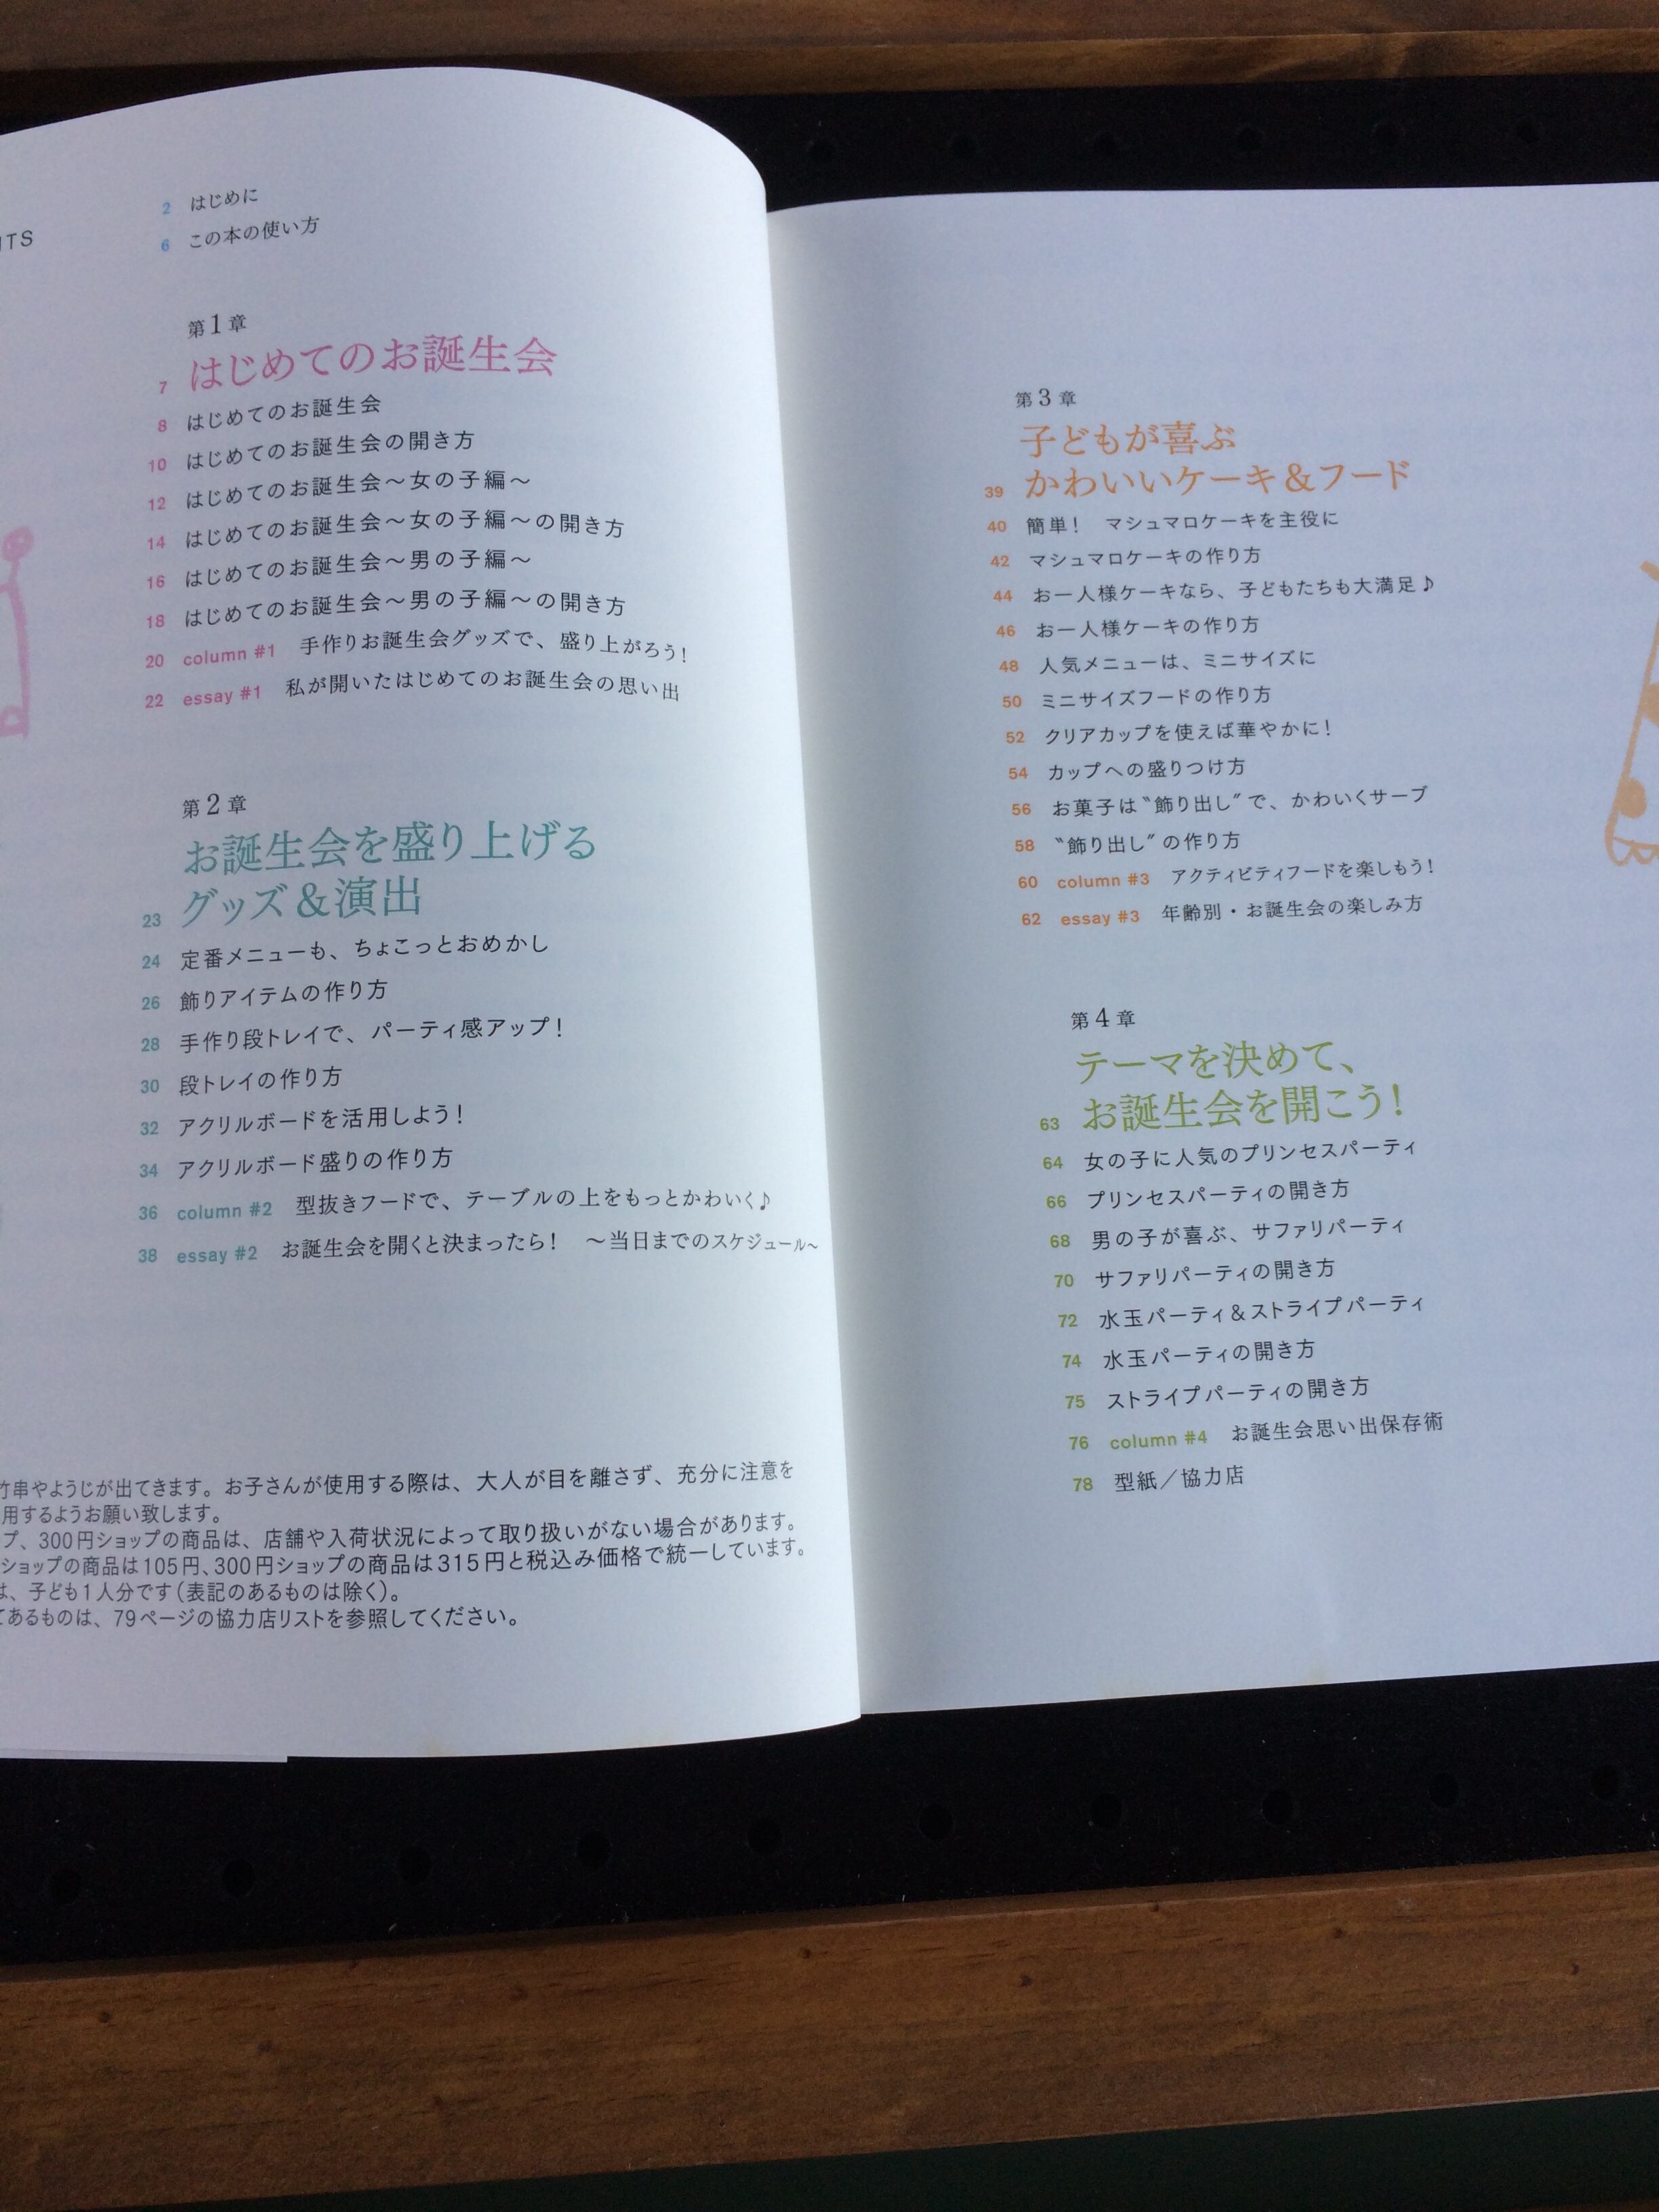 2 はじめに
6 この本の使い方
第1章
7 はじめてのお誕生会
8 はじめてのお誕生会
10 はじめてのお誕生会の開き方
12 はじめてのお誕生会～女の子編～
14 はじめてのお誕生会～女の子編～の開き方
16 はじめてのお誕生会～男の子編～
18 はじめてのお誕生会～男の子編～の開き方
20 column #1 手作りお誕生会グッズで、盛り上がろう！
22 essay #1 私が開いたはじめてのお誕生会の思い出
第2章
お誕生会を盛り上げる
23 グッズ＆演出
24 定番メニューも、ちょこっとおめかし
26 飾りアイテムの作り方
28 手作り段トレイで、パーティ感アップ！
30 段トレイの作り方
32 アクリルボードを活用しよう！
34 アクリルボード盛りの作り方
36 column #2 型抜きフードで、テーブルの上をもっとかわいく♪
38 essay #2 お誕生会を開くと決まったら！ ～当日までのスケジュール～
竹串やようじが出てきます。お子さんが使用する際は、大人が目を離さず、充分に注意を
用するようお願い致します。
プ、300円ショップの商品は、店舗や入荷状況によって取り扱いがない場合があります。
ショップの商品は105円、300円ショップの商品は315円と税込み価格で統一しています。
は、子ども1人分です（表記のあるものは除く）。
てあるものは、79ページの協力店リストを参照してください。
第3章
子どもが喜ぶ
39 かわいいケーキ＆フード
40 簡単！ マシュマロケーキを主役に
42 マシュマロケーキの作り方
44 お一人様ケーキなら、子どもたちも大満足♪
46 お一人様ケーキの作り方
48 人気メニューは、ミニサイズに
50 ミニサイズフードの作り方
52 クリアカップを使えば華やかに！
54 カップへの盛りつけ方
56 お菓子は〝飾り出し〟で、かわいくサーブ
58 〝飾り出し〟の作り方
60 column #3 アクティビティフードを楽しもう！
62 essay #3 年齢別・お誕生会の楽しみ方
第4章
テーマを決めて、
63 お誕生会を開こう！
64 女の子に人気のプリンセスパーティ
66 プリンセスパーティの開き方
68 男の子が喜ぶ、サファリパーティ
70 サファリパーティの開き方
72 水玉パーティ＆ストライプパーティ
74 水玉パーティの開き方
75 ストライプパーティの開き方
76 column #4 お誕生会思い出保存術
78 型紙／協力店